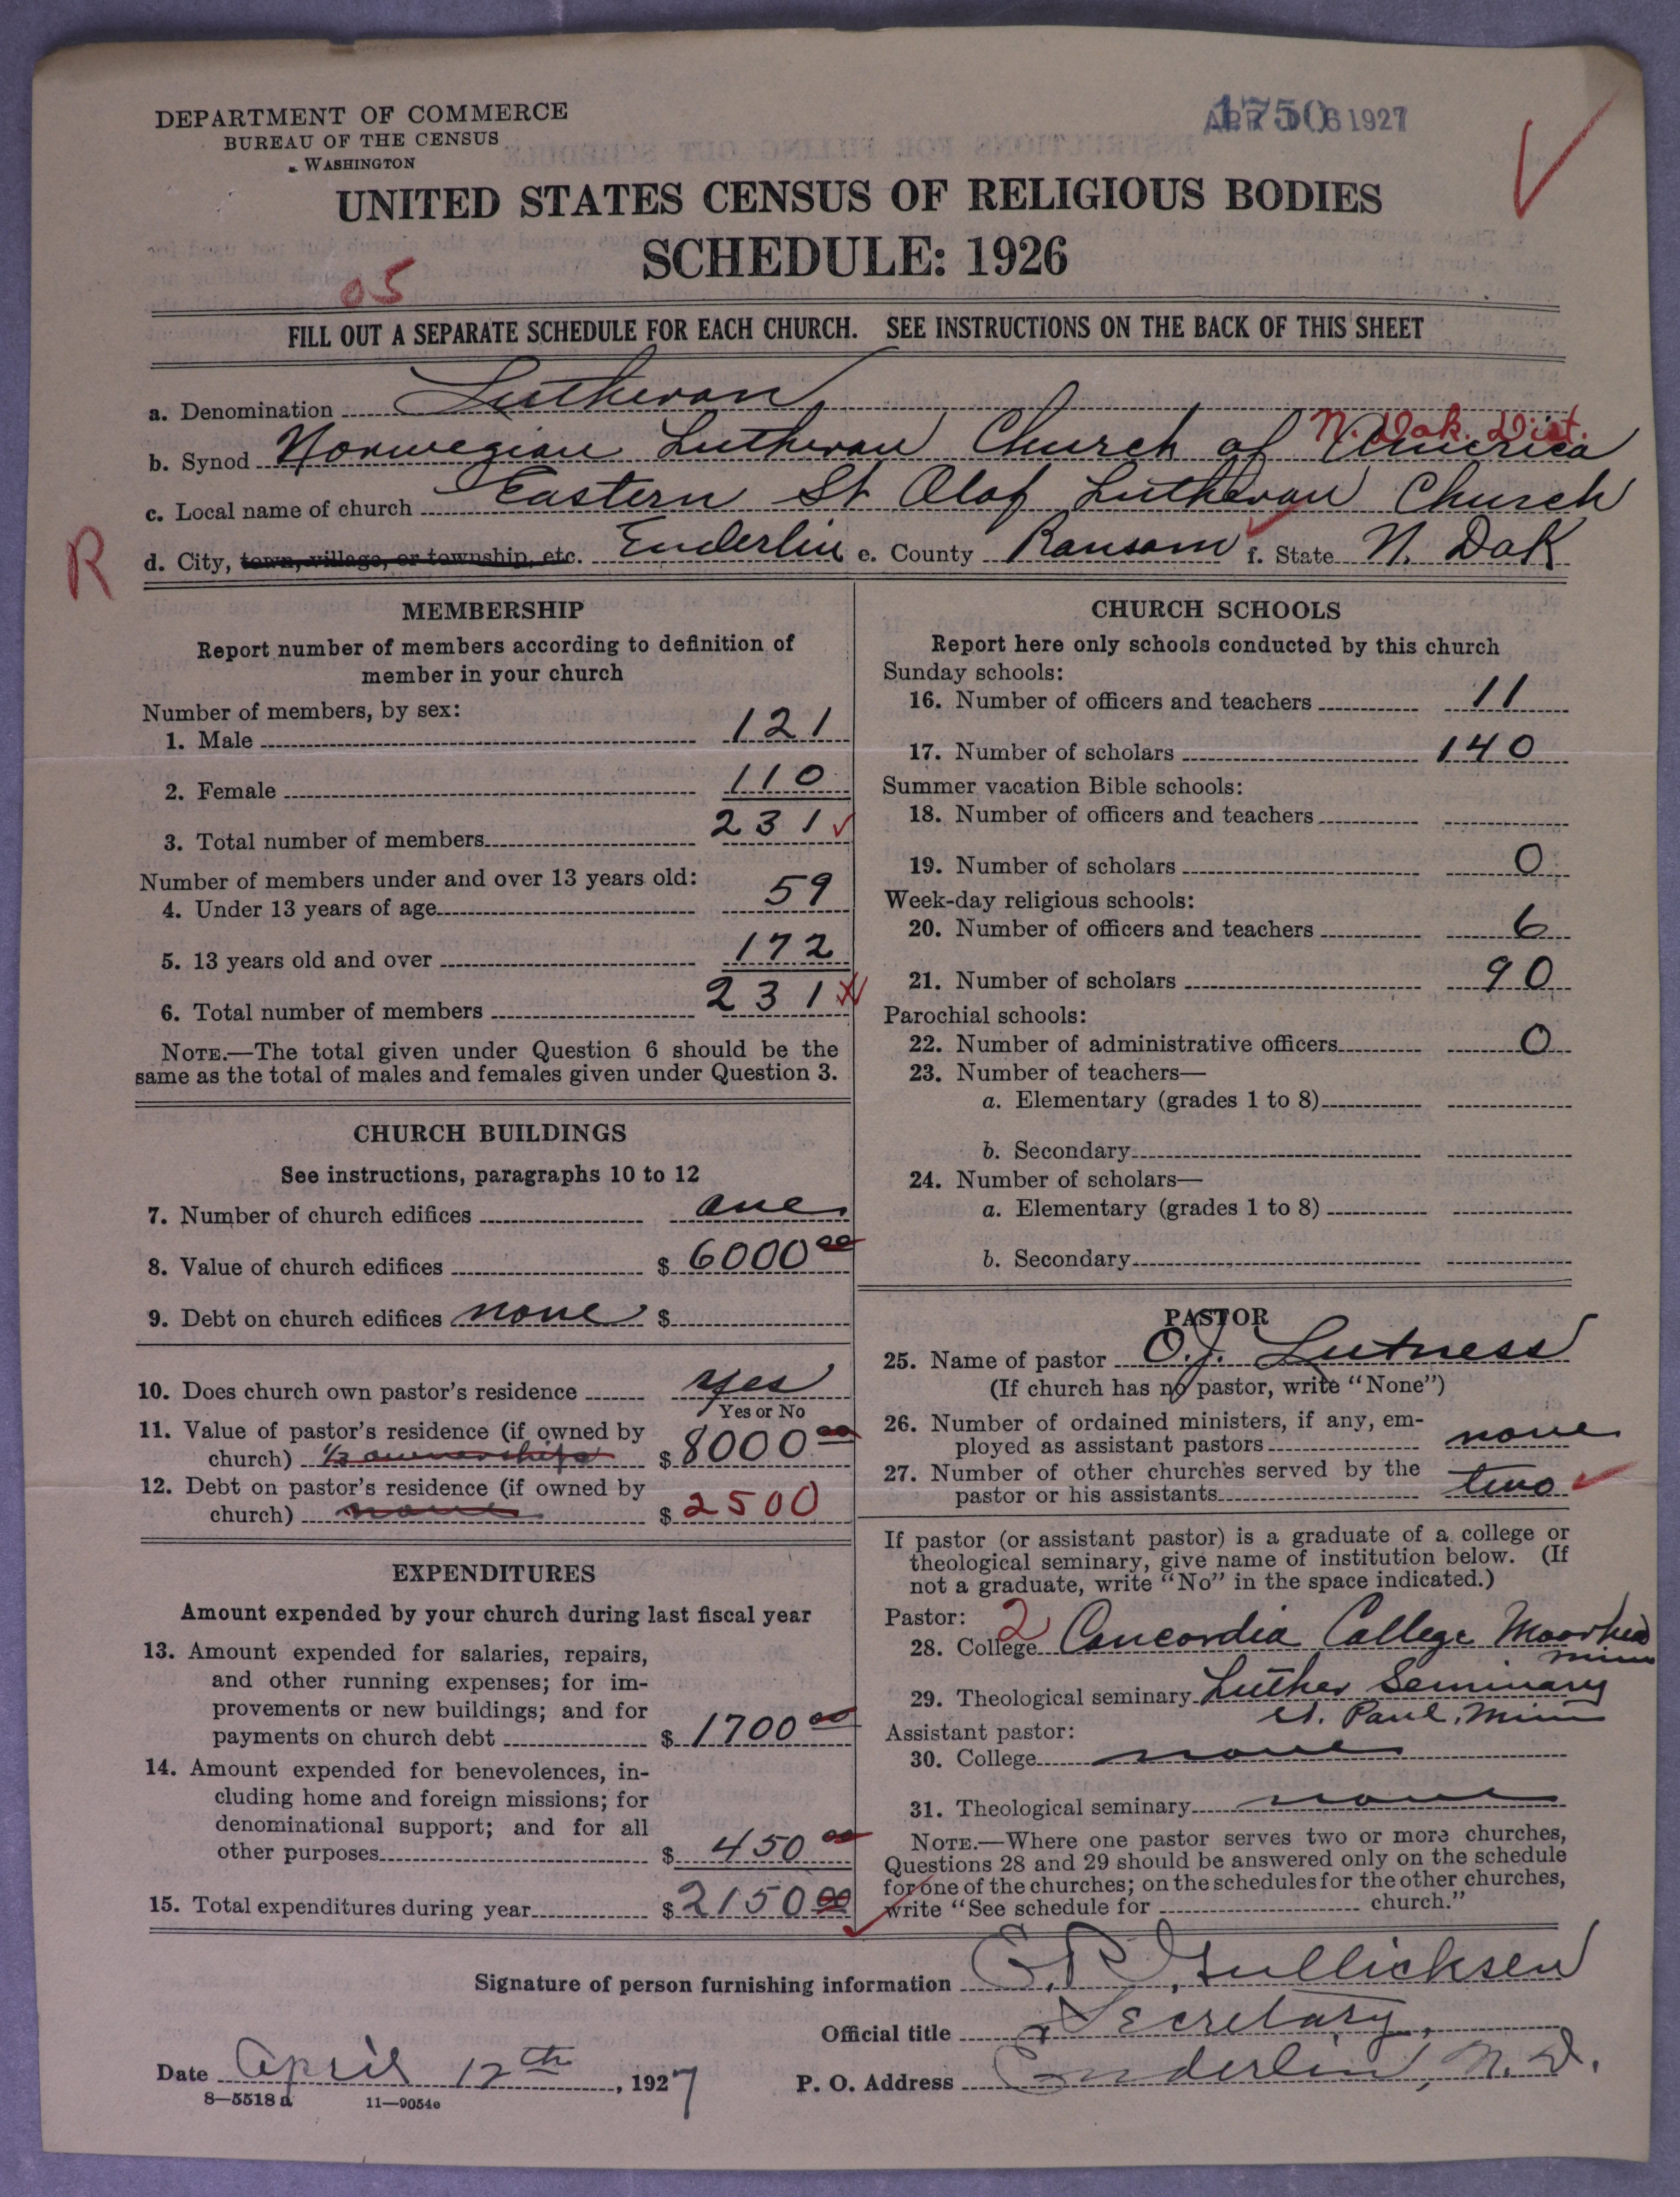 DEPARTMENT OF COMMERCE
BUREAU OF THE CENSUS
WASHINGTON
1750
APR 16 1927
UNITED STATES CENSUS OF RELIGIOUS BODIES
SCHEDULE: 1926
05
FILL OUT A SEPARATE SCHEDULE FOR EACH CHURCH. SEE INSTRUCTIONS ON THE BACK OF THIS SHEET
a. Denomination Lutheran
N. Dak. Dist.
b. Synod Norwegian Lutheran Church of America
c. Local name of church Eastern St Olaf Lutheran Church
R d. City, town, village, or township, etc. Enderlin e. County Ransom f. State N. Dak
MEMBERSHIP
Report number of members according to definition of
member in your church
Number of members, by sex:
1. Male 121
2. Female 110
3. Total number of members 231
Number of members under and over 13 years old:
4. Under 13 years of age 59
5. 13 years old and over 172
6. Total number of members 231
NOTE.—The total given under Question 6 should be the
same as the total of males and females given under Question 3.
CHURCH BUILDINGS
See instructions, paragraphs 10 to 12
7. Number of church edifices one
8. Value of church edifices $ 6000 00
9. Debt on church edifices none $
10. Does church own pastor's residence yes
Yes or No
11. Value of pastor's residence (if owned by
church) 1/3 ownership $ 8000 00
12. Debt on pastor's residence (if owned by
church) none $ 2500
EXPENDITURES
Amount expended by your church during last fiscal year
13. Amount expended for salaries, repairs,
and other running expenses; for im-
provements or new buildings; and for
payments on church debt $ 1700 00
14. Amount expended for benevolences, in-
cluding home and foreign missions; for
denominational support; and for all
other purposes $ 450 00
15. Total expenditures during year $ 2150 00
CHURCH SCHOOLS
Report here only schools conducted by this church
Sunday schools:
16. Number of officers and teachers 11
17. Number of scholars 140
Summer vacation Bible schools:
18. Number of officers and teachers
19. Number of scholars 0
Week-day religious schools:
20. Number of officers and teachers 6
21. Number of scholars 90
Parochial schools:
22. Number of administrative officers 0
23. Number of teachers—
a. Elementary (grades 1 to 8)
b. Secondary
24. Number of scholars—
a. Elementary (grades 1 to 8)
b. Secondary
PASTOR
25. Name of pastor O.J. Lutness
(If church has no pastor, write "None")
26. Number of ordained ministers, if any, em-
ployed as assistant pastors none
27. Number of other churches served by the
pastor or his assistants two
If pastor (or assistant pastor) is a graduate of a college or
theological seminary, give name of institution below. (If
not a graduate, write "No" in the space indicated.)
Pastor: 2
28. College Concordia College Moorhead
Minn
29. Theological seminary Luther Seminary
St. Paul, Minn
Assistant pastor:
30. College none
31. Theological seminary none
NOTE.—Where one pastor serves two or more churches,
Questions 28 and 29 should be answered only on the schedule
for one of the churches; on the schedules for the other churches,
write "See schedule for church."
Signature of person furnishing information Gullicksen
Official title Secretary,
Date April 12th, 1927 P. O. Address Enderlin, N. D.
8—5518 a 11—9054